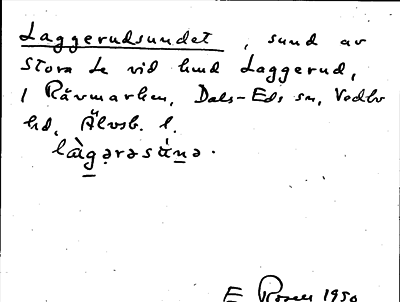 Laggerudsundet, sund av
Stora Le vid hmd Laggerud,
i Rävmarken, Dals-Eds sn, Vedbo
hd, Älvsb. l.
làg̲ərəsún̲ə.
E Rosell 1950